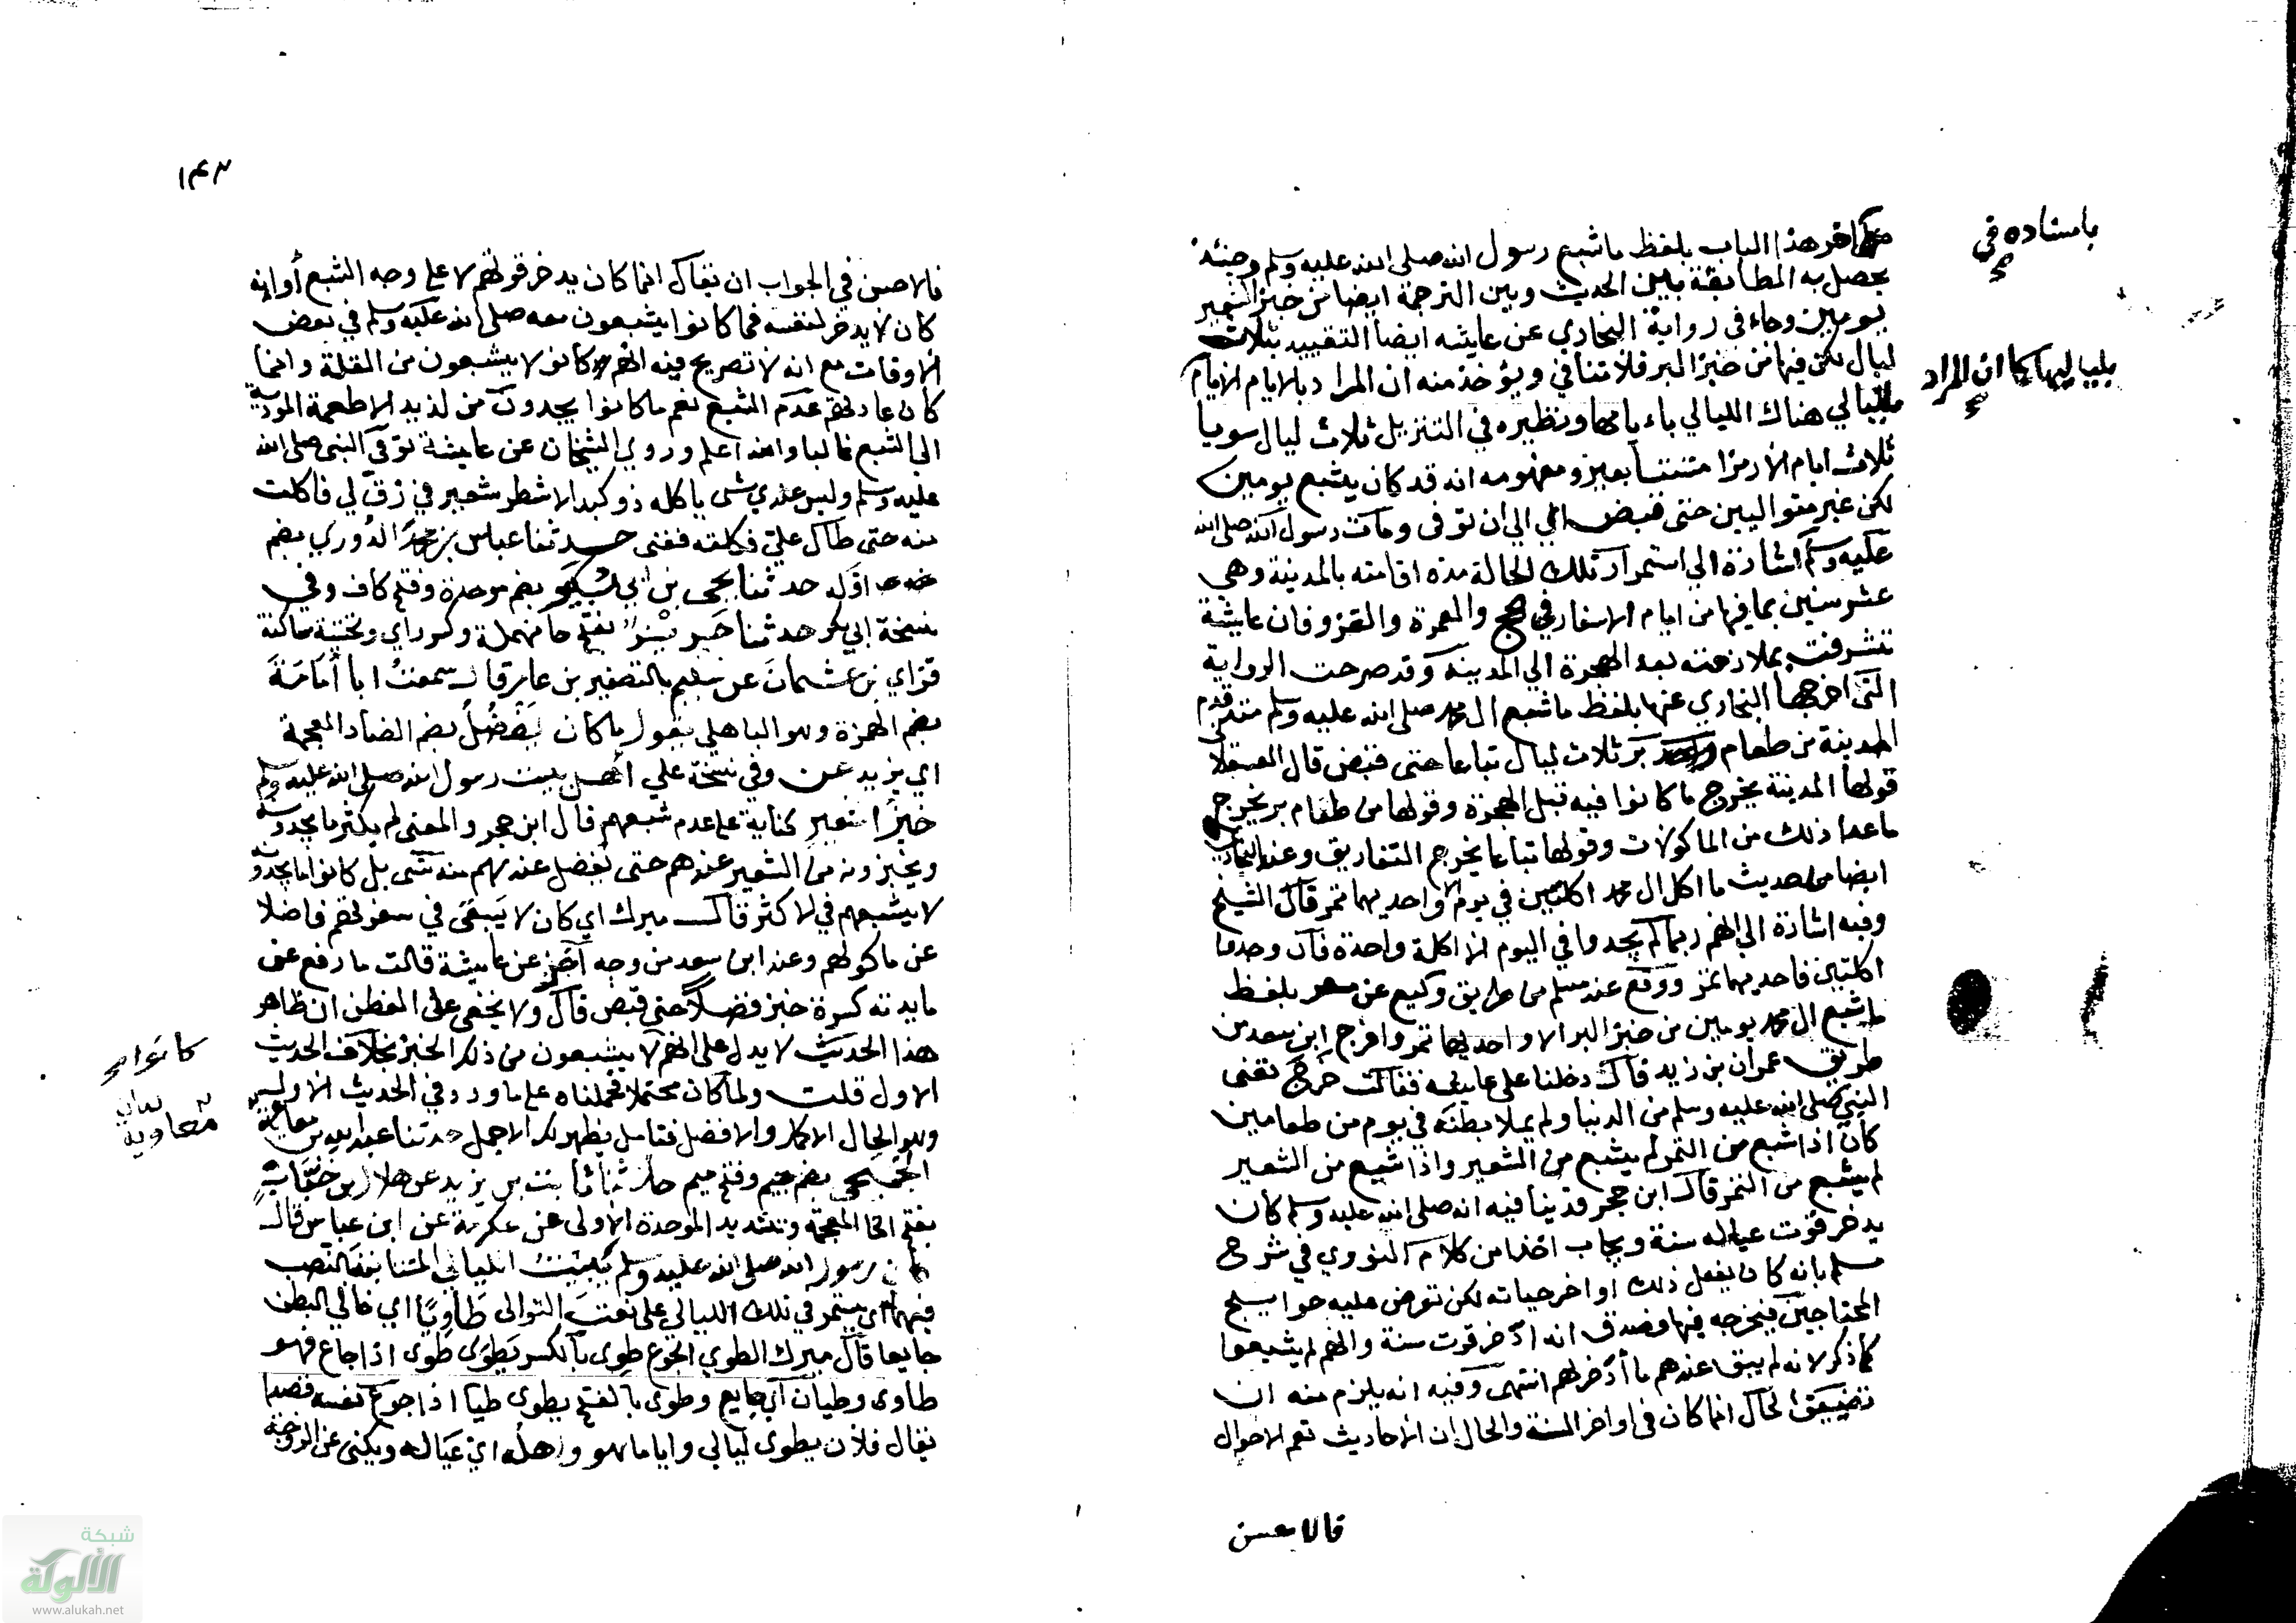 باسناده في
صح
اخر هذا الباب بلفظ ما شبع رسول الله صلى الله عليه وسلم وحينئذ
يحصل به المطابقة بين الحديث وبين الترجمة ايضا من خبز الشعير
يومين وجاء في رواية البخاري عن عايشه ايضا التقييد بثلاث
ليال لكن فيها من خبز البر فلا تنافي ويؤخذ منه ان المراد بالايام الايام
بلياليها كما ان المراد
صح
هناك الليالي بايامها ونظيره في التنزيل ثلاث ليال سويا
ثلاث ايام الا رمزا متتابعين ومفهومه انه قد كان يشبع يومين
لكن غير متواليين حتى قبض اي الي ان توفى ومات رسول الله صلى الله
عليه وسلم اشارة الي استمرار تلك الحالة مدة اقامته بالمدينة وهي
عشر سنين بما فيها من ايام الاسفار في الحج والعمرة والغزو فان عايشة
تشرفت بملازمته بعد الهجرة الي المدينة وقد صرحت الرواية
التي اخرجها البخاري عنها بلفظ ما شبع ال محمد صلى الله عليه وسلم منذ قدم
المدينة من طعام بر ثلاث ليال تباعا حتى قبض قال العسقلا
قولها المدينة يخرج ما كانوا فيه قبل الهجرة وقولها من طعام بر يخرج
ما عدا ذلك من الماكولات وقولها تباعا يخرج التفاريق وعند البخاري
ايضا من حديث ما اكل ال محمد اكلتين في يوم الا واحديهما تمر قال الشيخ
وفيه اشارة الي انهم ربما لم يجدوا في اليوم الا اكلة واحدة فان وجدوا
اكلتين فاحديهما تمر ووقع عند مسلم من طريق وكيع عن مسعر بلفظ
ما شبع ال محمد يومين من خبز البر الا واحديهما تمر واخرج ابن سعد من
طريق عمران بن زيد قال دخلنا على عايشه فقالت خرج تعني
النبي صلى الله عليه وسلم من الدنيا ولم يملا بطنه في يوم من طعامين
كان اذا شبع من التمر لم يشبع من الشعير واذا شبع من الشعير
لم يشبع من التمر قال ابن حجر قد ينافيه انه صلى الله عليه وسلم كان
يدخر قوت عياله سنة ويجاب اخذا من كلام النووي في شرح
مسلم بانه كان يفعل ذلك اواخر حياته لكن تعرض عليه حوايج
المحتاجين فيخرجه فيها فصدق انه ادخر قوت سنة وانهم لم يشبعوا
كما ذكر لانه لم يبق عندهم ما ادخر لهم انتهى وفيه انه يلزم منه ان
تضييق الحال انما كان في اواخر السنة والحال ان الاحاديث تعم الاحوال
فالاحسن
١٤٣
فالاحسن في الجواب ان يقال انما كان يدخر قوتهم لا على وجه الشبع أو انه
كان لا يدخر لنفسه فما كانوا يشبعون معه صلى الله عليه وسلم في بعض
الاوقات مع انه لا تصريح فيه انهم كانوا لا يشبعون من القلة وانما
كان عادتهم عدم الشبع نعم ما كانوا يجدون من لذيذ الاطعمة المودية
الي الشبع غالبا والله اعلم وروي الشيخان عن عايشة توفي النبي صلى الله
عليه وسلم وليس عندي شى ياكله ذو كبد الا شطر شعير في رف لي فاكلت
منه حتى طال علي فكلته ففنى حدثنا عباس بن محمد الدوري بضم
اوله حدثنا يحيى بن ابي بكير بضم موحدة وفتح كاف وفي
نسخة ابي بكر حدثنا حريز بفتح حا مهملة وكسر راي وتحتية ساكنة
فزاي بن عثمان عن سليم بالتصغير بن عامر قال سمعت ابا أمامة
بضم الهمزة وهو الباهلي يقول ما كان يفضل بضم الضاد المعجمة
اي يزيد عن وفي نسخة علي أهل بيت رسول الله صلى الله عليه وسلم
خبز الشعير كناية على عدم شبعهم قال ابن حجر والمعنى لم يكثر ما يجدونه
ويخبزونه من الشعير عندهم حتى يفضل عندهم منه شى بل كانوا ما يجدونه
لا يشبعهم في الاكثر قال ميرك اي كان لا يبقى في سفرتهم فاضلا
عن ماكولهم وعند ابن سعد من وجه آخر عن عايشة قالت ما رفع عن
مايدته كسرة خبز فضلا حتى قبض قال ولا يخفى على المفطن ان ظاهر
هذا الحديث لا يدل على انهم لا يشبعون من ذلك الخبز بخلاف الحديث
كانوا صح
الاول قلت ولما كان محتملا فحملناه على ما ورد في الحديث الاول
وهو الحال الاكمل والافضل فتامل يظهر لك الاجمل حدثنا عبد الله بن معاوية
بيان
معاوية
الجمحي بضم جيم وفتح ميم حدثنا ثابت بن يزيد عن هلال بن خباب
بفتح الخا المعجمة وتشديد الموحدة الاولى عن عكرمة عن ابن عباس قال
كان رسول الله صلى الله عليه وسلم يبيت الليالي المتتابعة بالنصب
فيهما اي يستمر في تلك الليالي على نعت التوالي طاويا اي خالي البطن
جايعا قال ميرك الطوي الجوع طوي بالكسر يطوى طوى اذا جاع فهو
طاوى وطيان اي جايع وطوى بالفتح يطوى طيا اذا جوع نفسه قصدا
يقال فلان يطوى ليالي واياما هو واهله اي عياله ويكنى عن الزوجة
شبكة
الألوكة
www.alukah.net